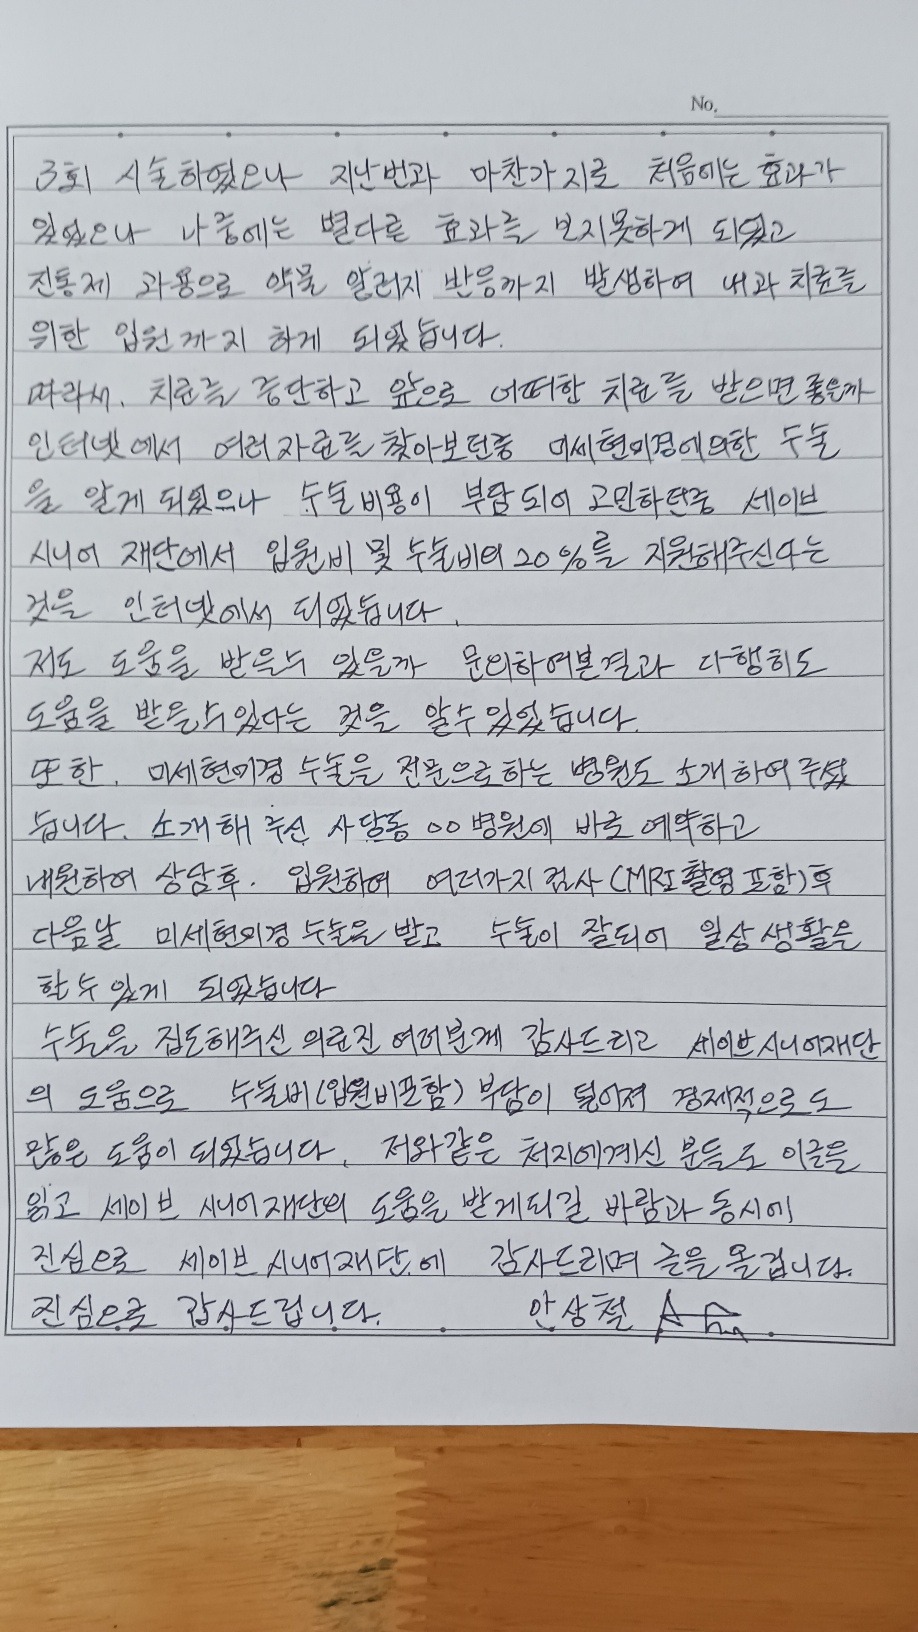 No.
3회 시술하였으나 지난번과 마찬가지로 처음에는 효과가
있었으나 나중에는 별다른 효과를 보지못하게 되었고
진통제 과용으로 약물 알러지 반응까지 발생하여 내과 치료를
위한 입원까지 하게 되었습니다.
따라서, 치료를 중단하고 앞으로 어떠한 치료를 받으면 좋을까
인터넷에서 여러자료를 찾아보던중 미세현미경에의한 수술
을 알게 되었으나 수술비용이 부담되어 고민하던중 세이브
시니어 재단에서 입원비 및 수술비의 20%를 지원해주신다는
것을 인터넷에서 되었습니다.
저도 도움을 받을수 있을까 문의하여본결과 다행히도
도움을 받을수있다는 것을 알수있었습니다.
또한, 미세현미경 수술을 전문으로하는 병원도 소개하여주셨
습니다. 소개해 주신 사당동 00병원에 바로 예약하고
내원하여 상담후. 입원하여 여러가지검사(MRI촬영포함)후
다음날 미세현미경 수술을 받고 수술이 잘되어 일상생활은
할수있게 되었습니다
수술을 집도해주신 의료진 여러분께 감사드리고 세이브시니어재단
의 도움으로 수술비(입원비포함) 부담이 덜어져 경제적으로도
많은 도움이 되었습니다. 저와같은 처지에계신 분들도 이글을
읽고 세이브 시니어재단의 도움을 받게되길 바람과 동시에
진심으로 세이브 시니어재단에 감사드리며 글을 올립니다.
진심으로 감사드립니다. 안상철